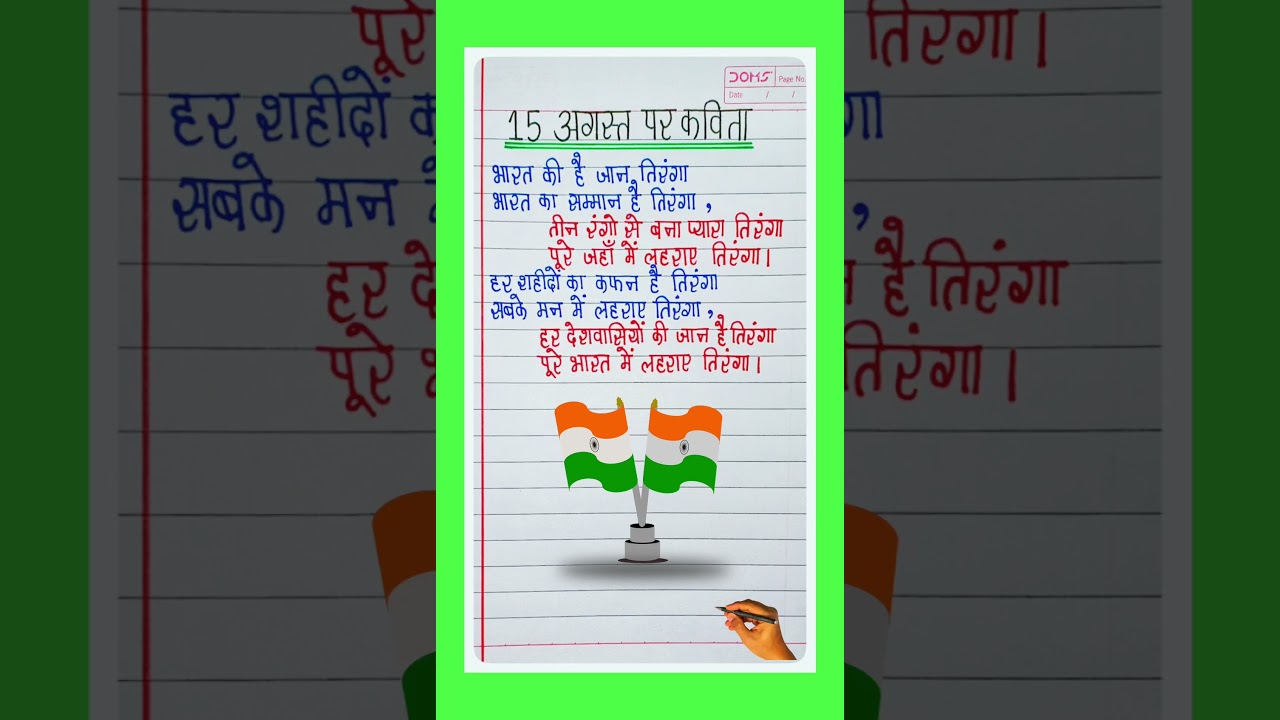 DOMS
Page No.
Date / /
15 अगस्त पर कविता
भारत की है जान तिरंगा
भारत का सम्मान है तिरंगा,
तीन रंगो से बना प्यारा तिरंगा
पूरे जहाँ में लहराए तिरंगा।
हर शहीदों का कफन है तिरंगा
सबके मन में लहराए तिरंगा,
हर देशवासियों की जान है तिरंगा
पूरे भारत में लहराए तिरंगा।